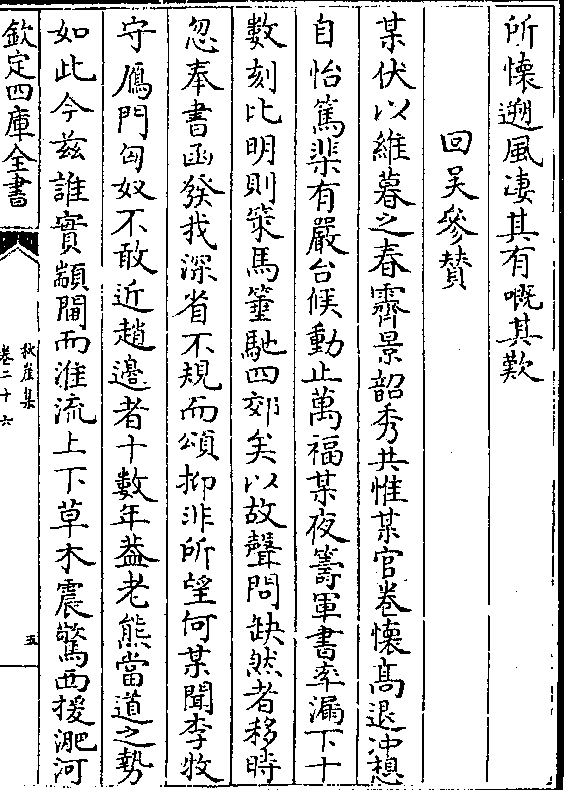 所懷遡風凄其有嘅其歎
回吴參賛
某伏以維暮之春霽景韶秀共惟某官卷懷髙退冲想
自怡篤棐有嚴台候動止萬福某夜籌軍書率漏下十
數刻比明則䇿馬箠馳四郊矣以故聲問缺然者移時
忽奉書函發我深省不規而頌抑非所望何某聞李牧
守鴈門匈奴不敢近趙邊者十數年葢老熊當道之勢
如此今兹誰實顓閫而淮流上下草木震驚西援淝河
欽定四庫全書
秋崖集
卷二十六
五